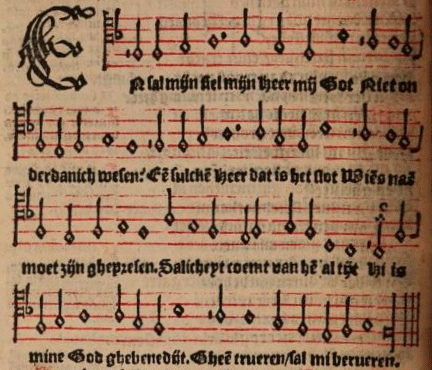 EN sal mijn siel mijn Heer mij Got Niet on
derdanich wesen? Eẽ sulckẽ Heer dat is het slot Wiẽs naẽ
moet zijn ghepresen. Salicheyt coemt van hẽ al tijt Hi is
mine God ghebenedijt. Gheẽ trueren/sal mi berueren.